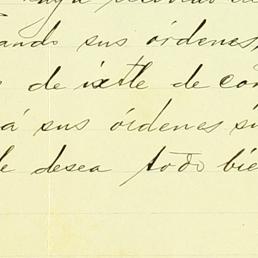 ando sus órdenes,
de ixtle de con
á sus órdenes su
le desea todo bie